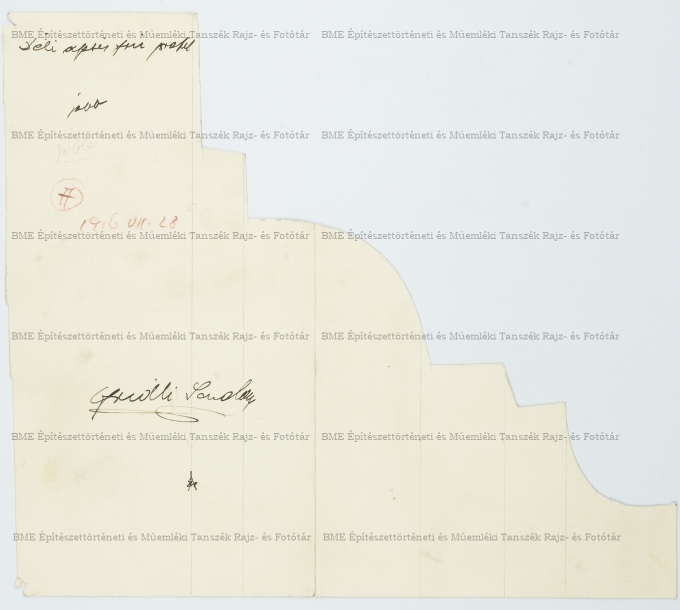 BME Építészettörténeti és Műemléki Tanszék Rajz- és Fotótár BME Építészettörténeti és Műemléki Tanszék Rajz- és Fotótár
Déli apsis
jobb
BME Építészettörténeti és Műemléki Tanszék Rajz- és Fotótár BME Építészettörténeti és Műemléki Tanszék Rajz- és Fotótár
1916 VII. 28
BME Építészettörténeti és Műemléki Tanszék Rajz- és Fotótár BME Építészettörténeti és Műemléki Tanszék Rajz- és Fotótár
BME Építészettörténeti és Műemléki Tanszék Rajz- és Fotótár BME Építészettörténeti és Műemléki Tanszék Rajz- és Fotótár
BME Építészettörténeti és Műemléki Tanszék Rajz- és Fotótár BME Építészettörténeti és Műemléki Tanszék Rajz- és Fotótár
BME Építészettörténeti és Műemléki Tanszék Rajz- és Fotótár BME Építészettörténeti és Műemléki Tanszék Rajz- és Fotótár